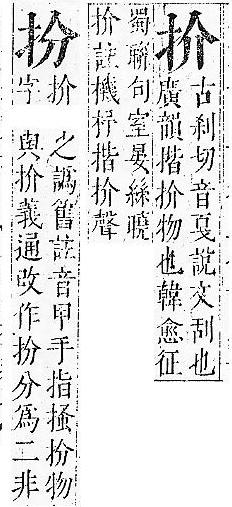 扴
古刹切音戛說文刮也
廣韻揩扴物也韓愈征
蜀聯句室晏絲曉
扴註機杼揩扴聲
扮
扴
字
之譌舊註音甲手指搔扮物
與扴義通改作扮分為二非